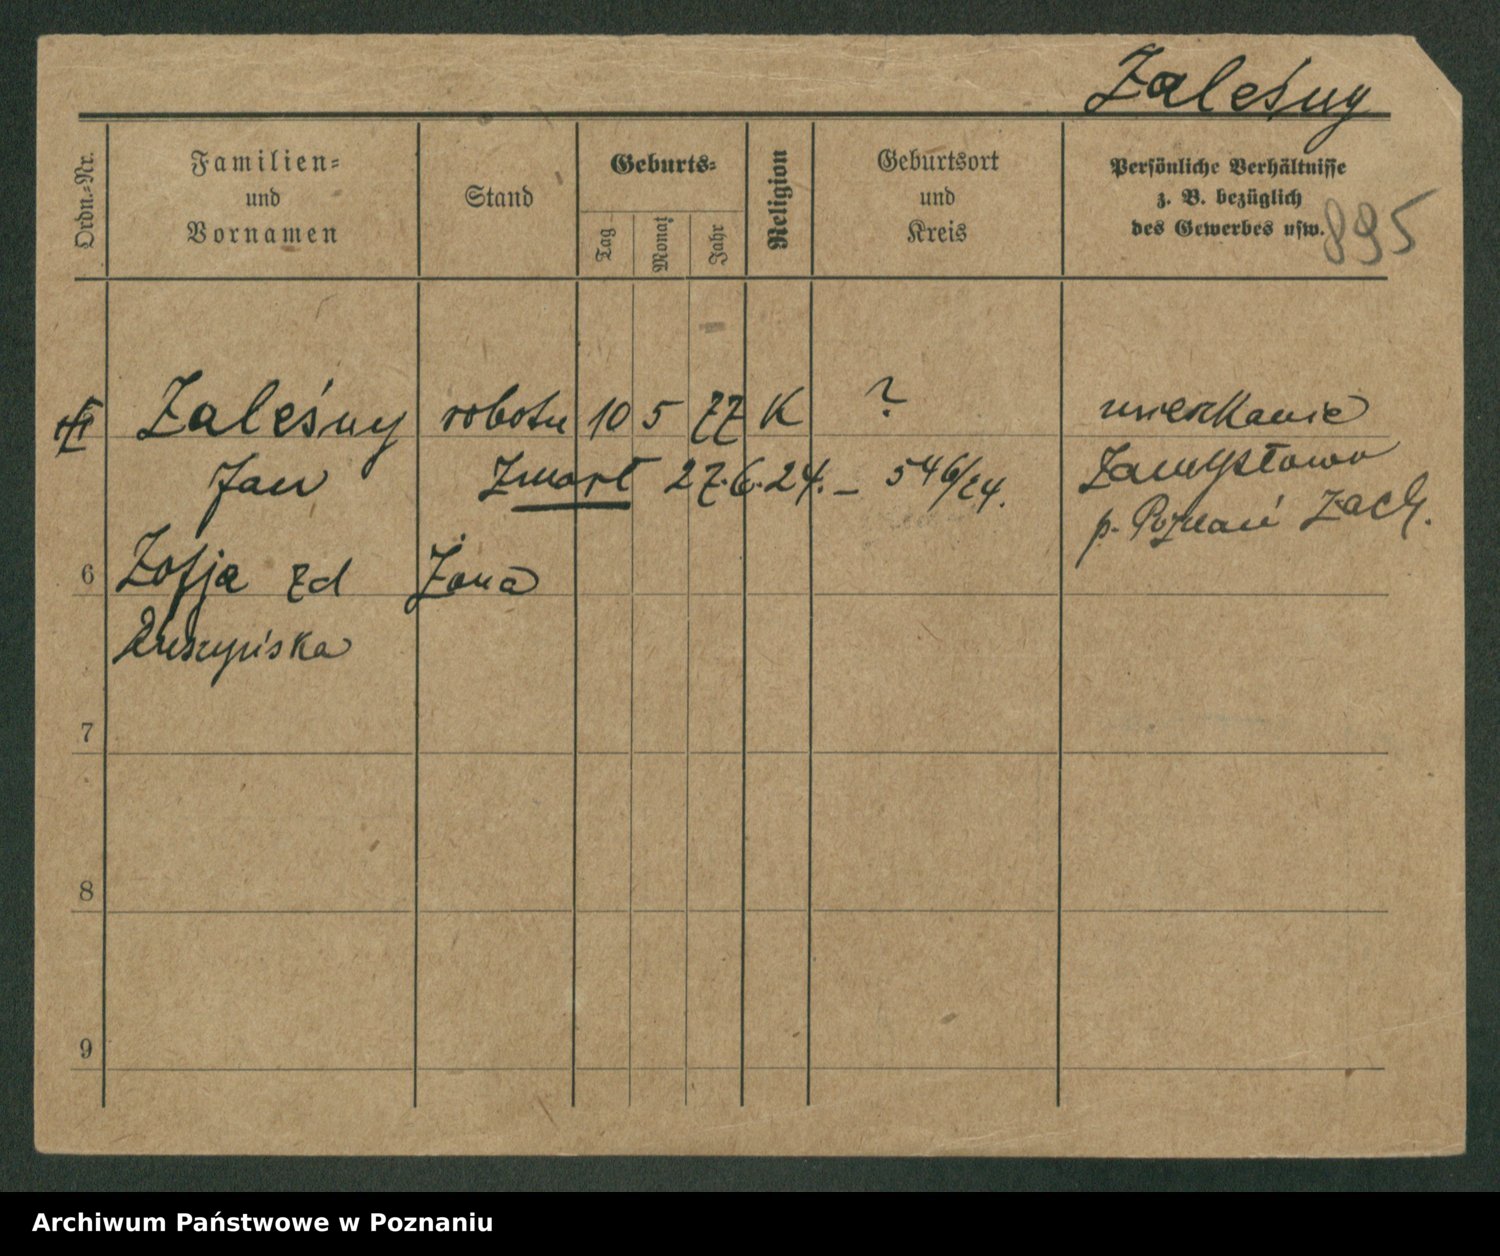 Zaleśny
Ordn.-Nr.
Familien-
und
Vornamen
Stand
Geburts-
Tag
Monat
Jahr
Religion
Geburtsort
und
Kreis
Persönliche Verhältnisse
z. B. bezüglich
des Gewerbes usw.
895
Zaleśny robotn 10 5 77 K ? mieszkanie
Jan Zmarł 27.6.24. – 546/24. Zamysłowo
p. Poznań Zach.
6 Zofja zd Żona
7
8
9
Archiwum Państwowe w Poznaniu